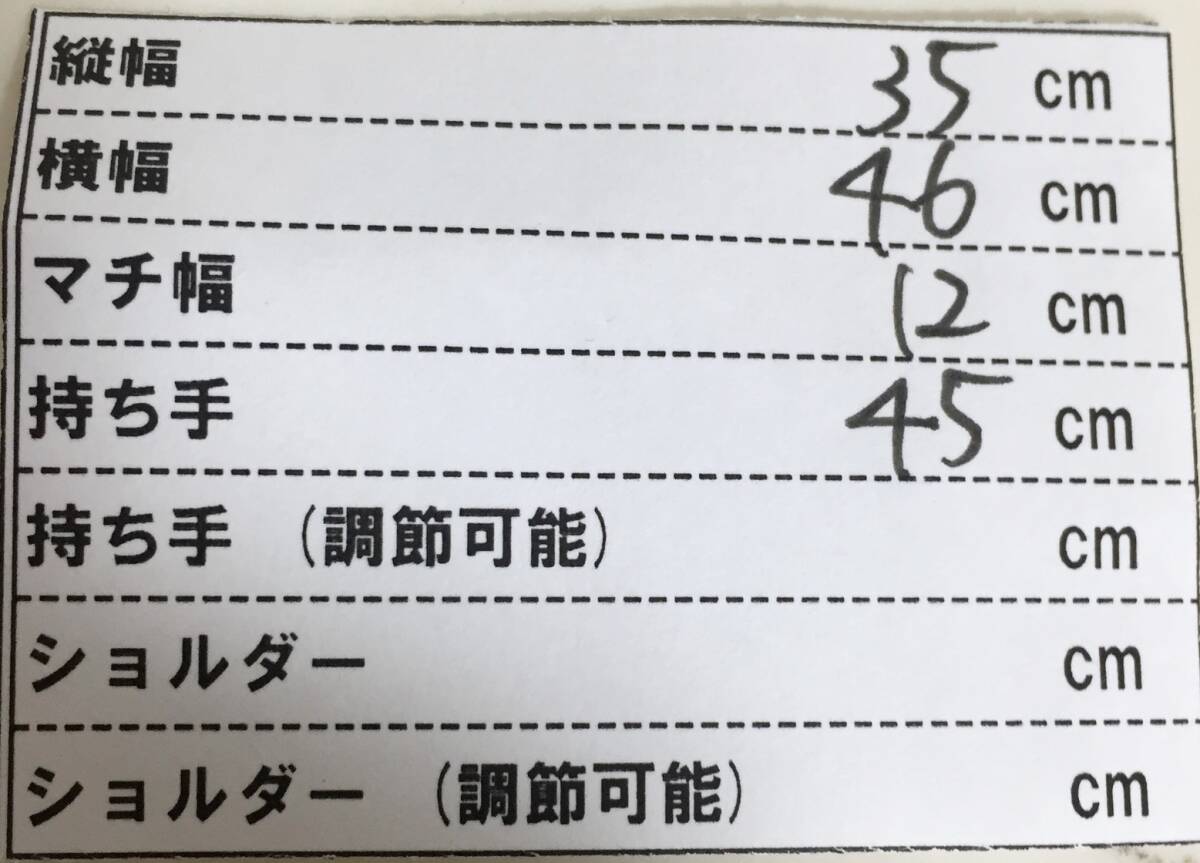 縦幅 35 cm
横幅 46 cm
マチ幅 12 cm
持ち手 45 cm
持ち手 (調節可能) cm
ショルダー cm
ショルダー (調節可能) cm